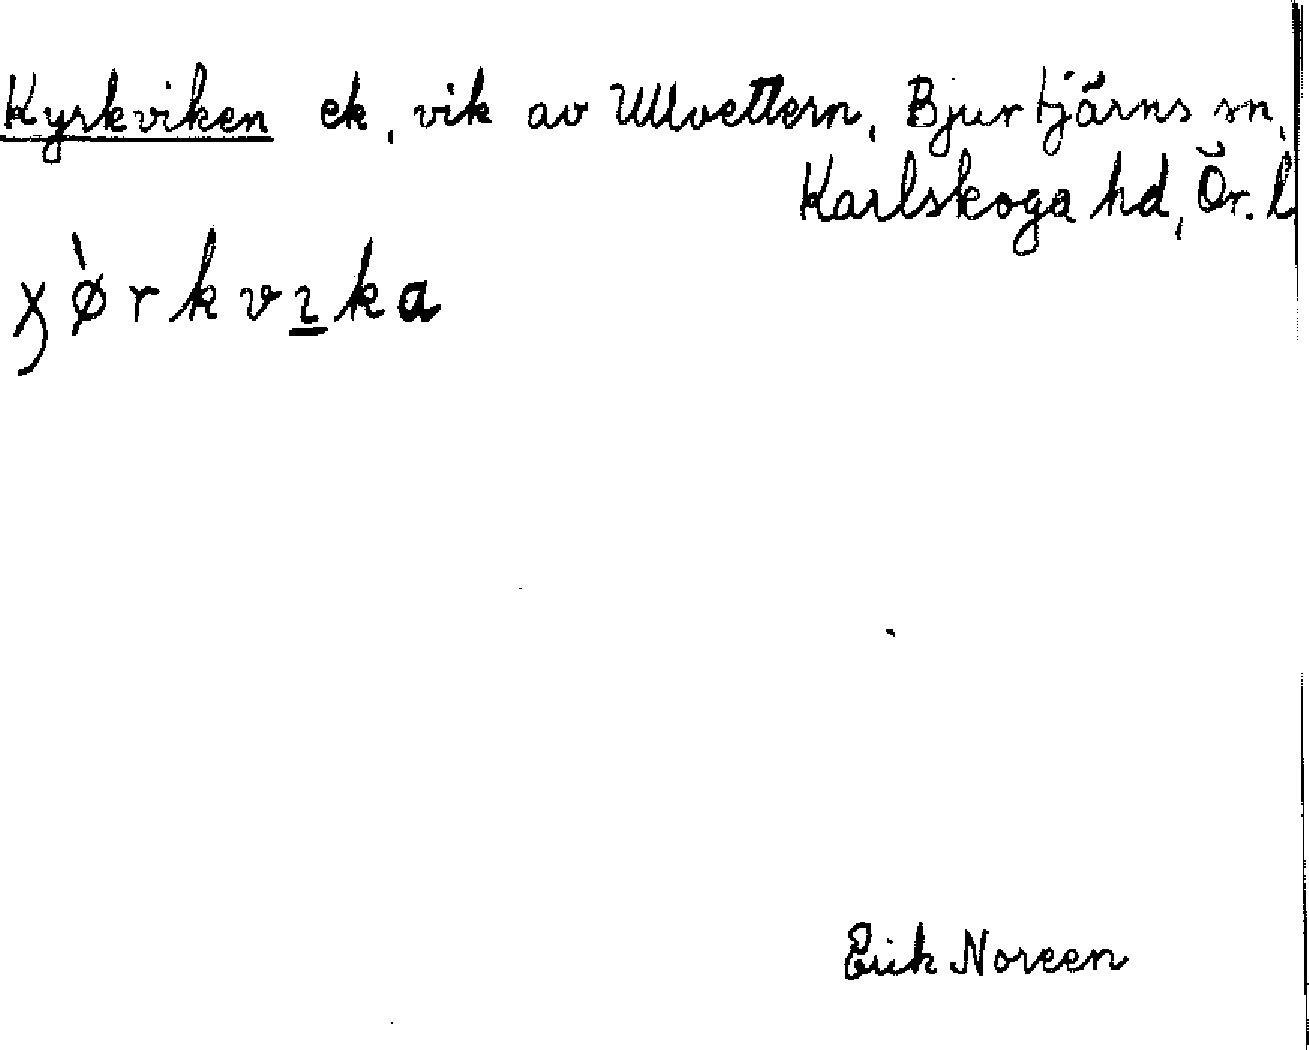 Kyrkviken ek, vik av Ullvettern, Bjurtjärns sn,
Karlskoga hd, Ör. l
χø̀rkvɪ̱ka
Erik Noreen